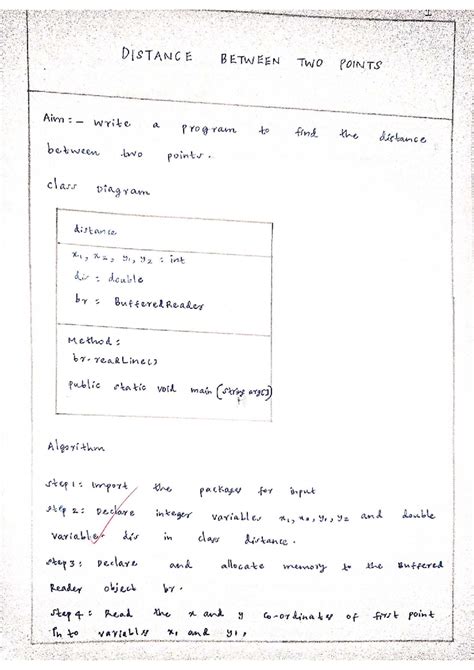 DISTANCE BETWEEN TWO POINTS
Aim :- write a program to find the distance
between two points.
class Diagram
distance
x₁, x₂, y₁, y₂ : int
dis : double
br : BufferedReader
Method :
br.readLine()
public static void main (string args[])
Algorithm
step 1 : import the packages for input
step 2 : Declare integer variables x₁, x₂, y₁, y₂ and double
variable dis in class distance.
step 3 : Declare and allocate memory to the Buffered
Reader object br.
step 4 : Read the x and y co-ordinates of first point
In to variables x₁ and y₁,